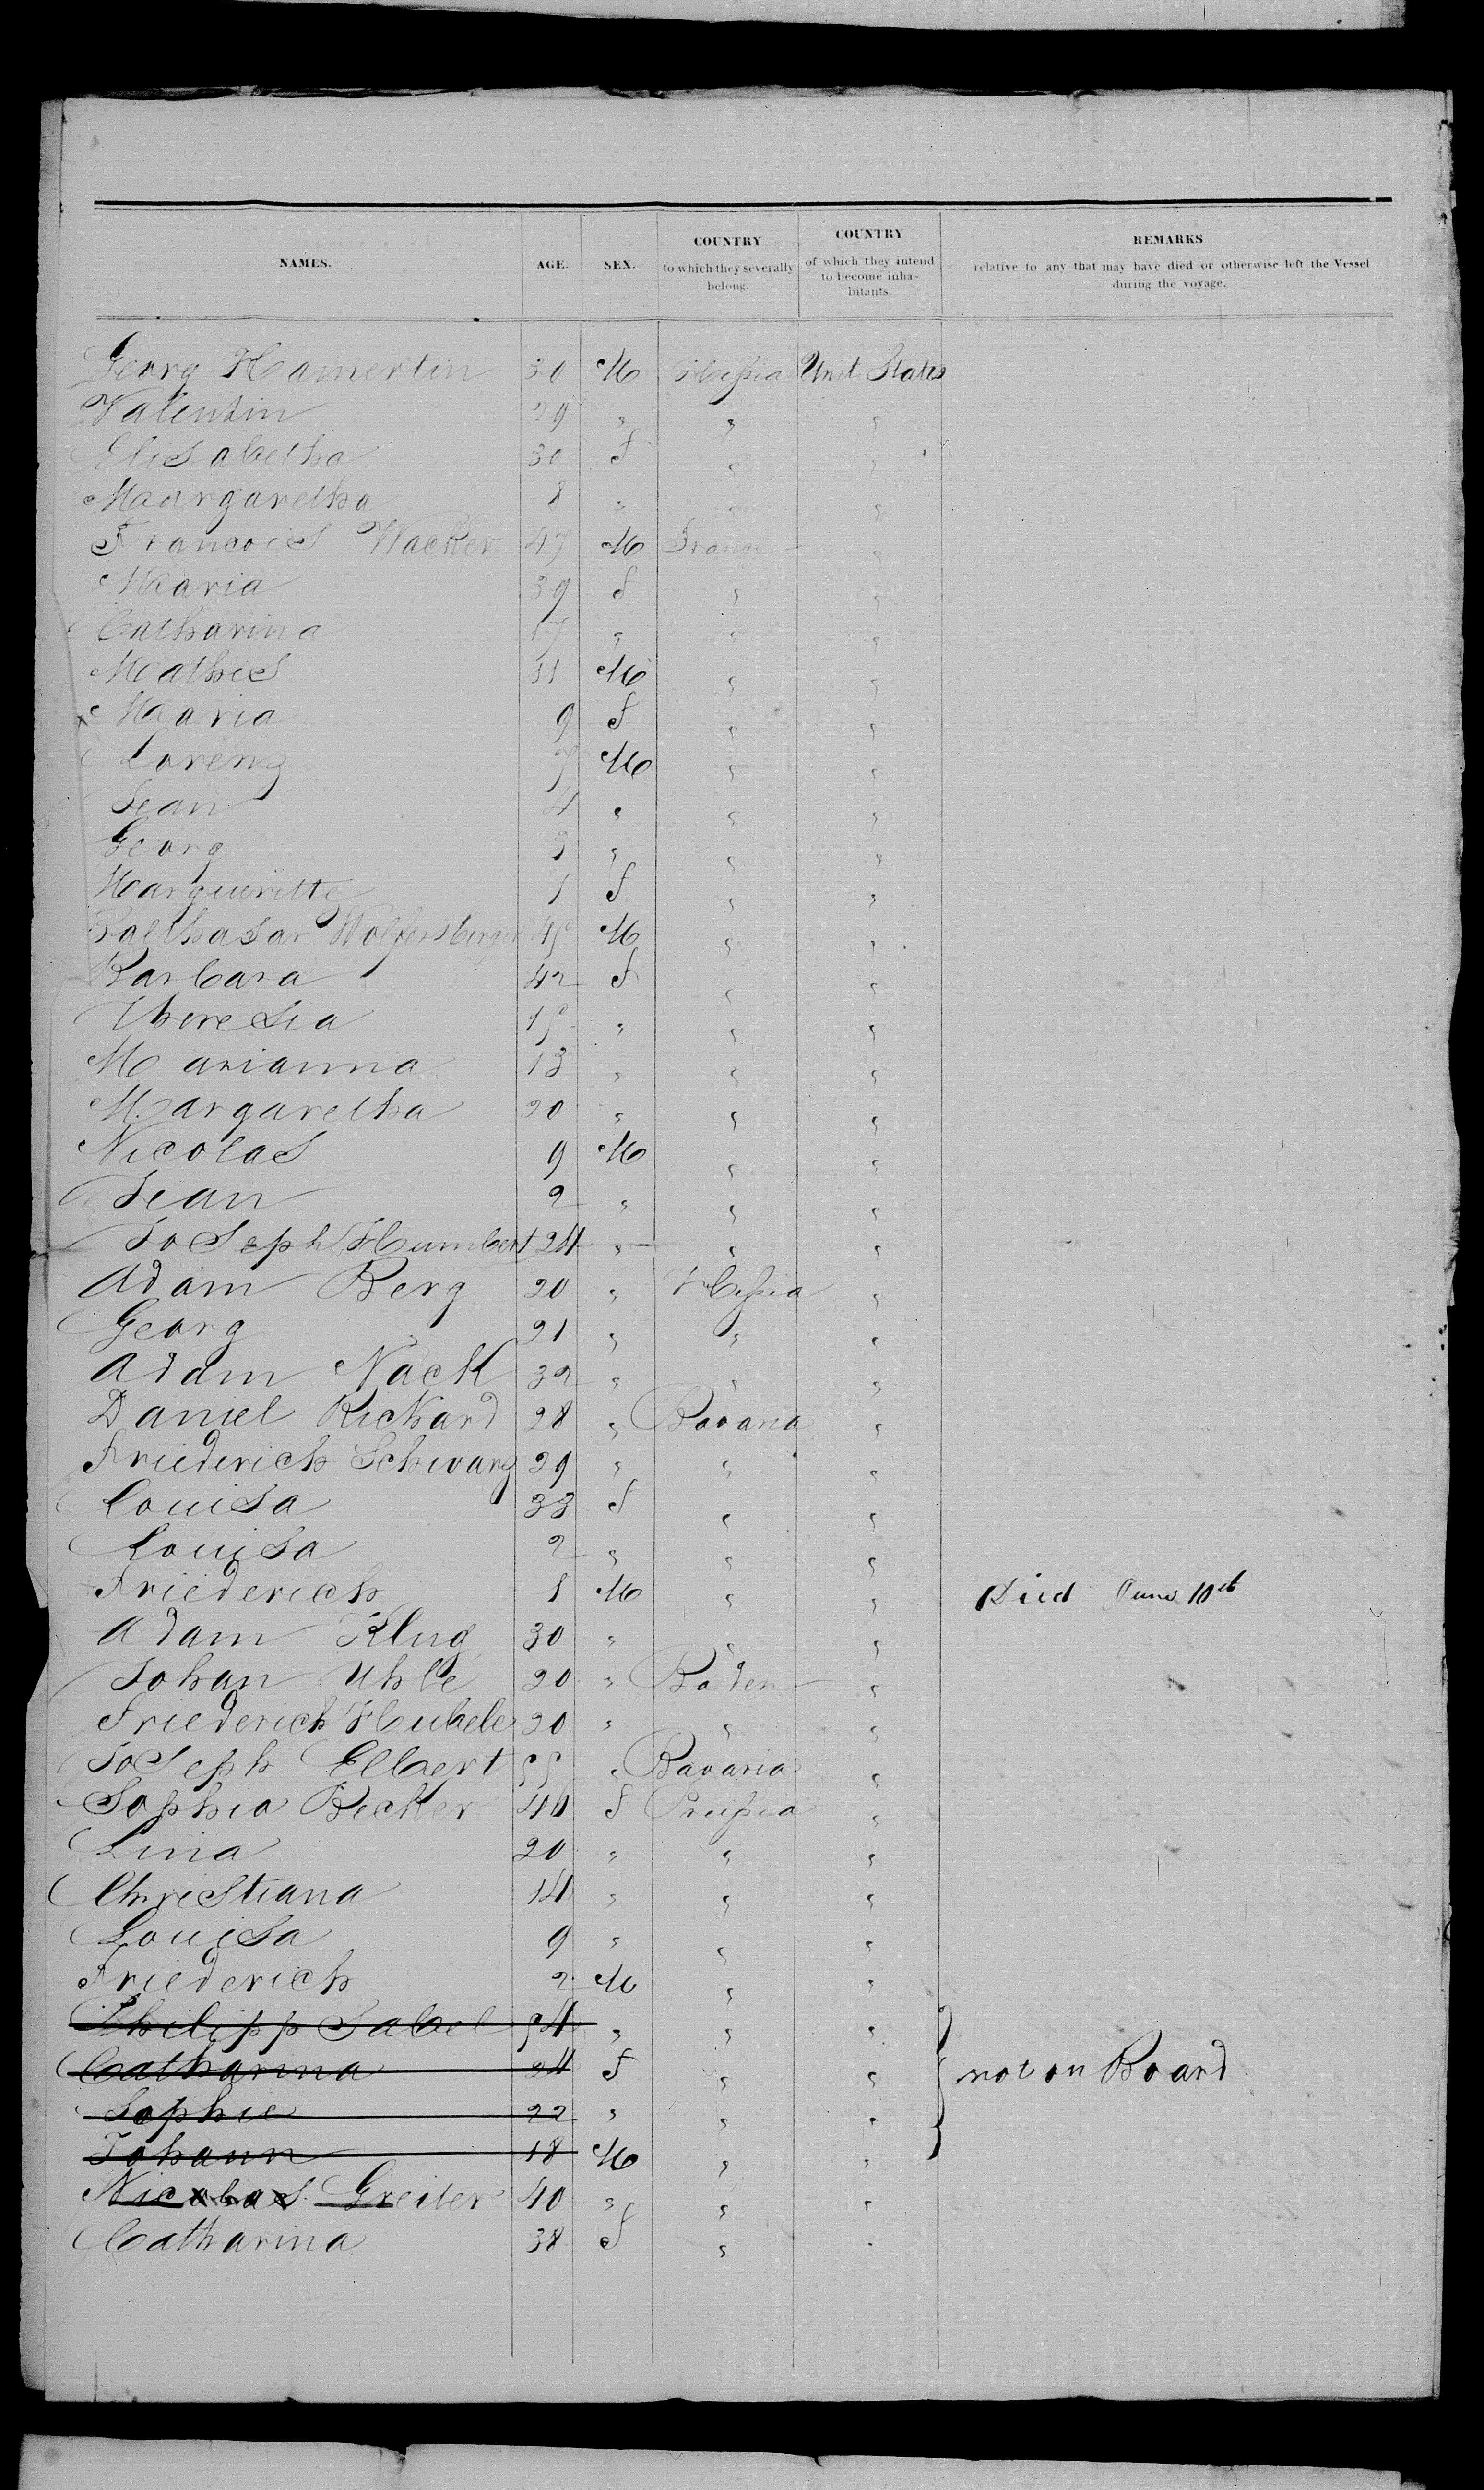 NAMES. AGE. SEX. COUNTRY to which they severally belong. COUNTRY of which they intend to become inhabitants. REMARKS relative to any that may have died or otherwise left the Vessel during the voyage.
Georg Hamertin 30 M Hessia Unit States
Valentin 29 " " "
Elisabetha 30 f " "
Maargaretha 8 " " "
Francois Wacker 47 M France "
Maria 39 f " "
Catharina 17 " " "
Mathis 11 M " "
Maaria 9 f " "
Lorenz 7 M " "
Jean 4 " " "
Georg 3 " " "
Margueritte 1 f " "
Balthasar Wolfersberger 45 M " "
Barbara 42 f " "
Theresia 15 " " "
Marianna 13 " " "
Margaretha 20 " " "
Nicolas 9 M " "
Jean 2 " " "
Joseph Humbert 24 " " "
Adam Berg 20 " Hessia "
Georg 21 " " "
Adam Nack 32 " " "
Daniel Rickard 28 " Bavaria "
Friederich Schwarz 29 " " "
Louisa 33 f " "
Louisa 2 " " "
Friederich 1 M " " Died June 10th
Adam Klug 30 " " "
Johan Uhle 20 " Baden "
Friederich Hubele 20 " " "
Joseph Elbert 55 " Bavaria "
Sophia Becker 46 f Preussia "
Lina 20 " " "
Christiana 14 " " "
Louisa 9 " " "
Friederich 2 M " "
Philipp Sabel 54 " " "
Catharina 24 f " " not on Board
Sophie 22 " " "
Johann 18 M " "
Nicolas Greiter 40 " " "
Catharina 38 f " "